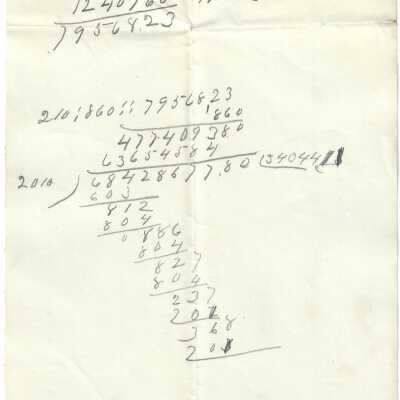 7956823
210:860:: 7956823
860
477409380
63654584
2010) 6842867780 (34044
603
812
804
0886
804
827
804
237
201
368
201